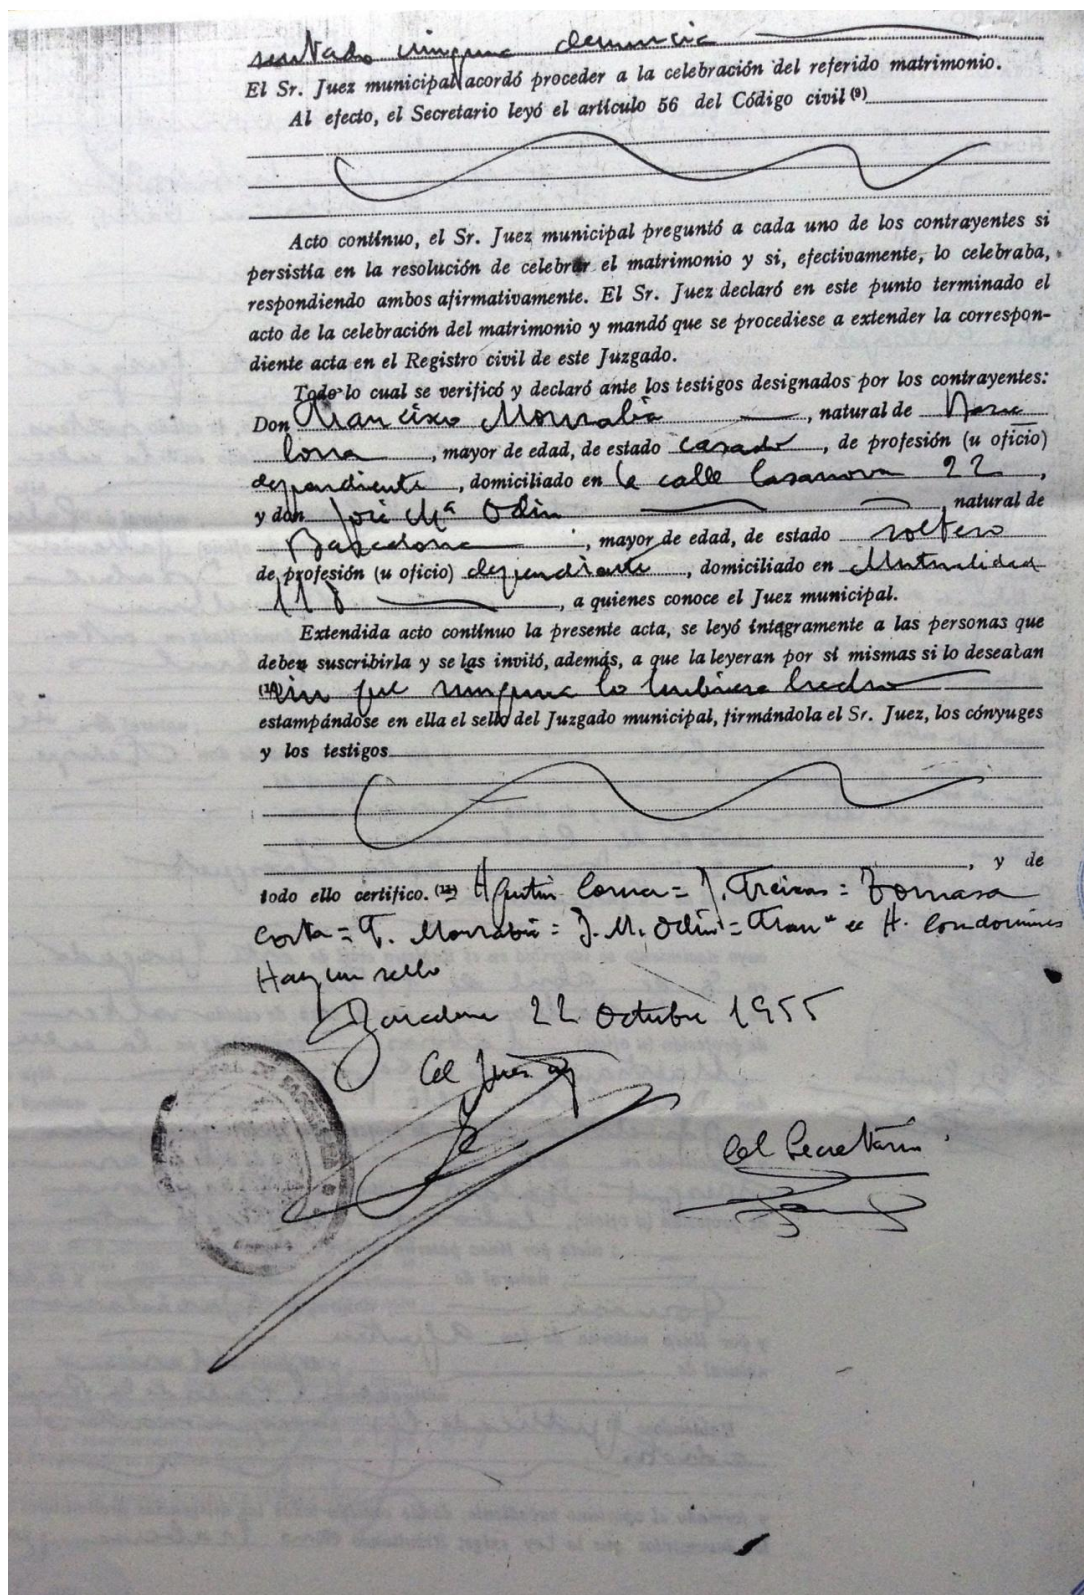 sentado ninguna denuncia
El Sr. Juez municipal acordó proceder a la celebración del referido matrimonio.
Al efecto, el Secretario leyó el artículo 56 del Código civil (9)
Acto contínuo, el Sr. Juez municipal preguntó a cada uno de los contrayentes si
persistía en la resolución de celebrar el matrimonio y si, efectivamente, lo celebraba,
respondiendo ambos afirmativamente. El Sr. Juez declaró en este punto terminado el
acto de la celebración del matrimonio y mandó que se procediese a extender la correspon-
diente acta en el Registro civil de este Juzgado.
Todo lo cual se verificó y declaró ante los testigos designados por los contrayentes:
Don Francisco , natural de Barce
lona , mayor de edad, de estado casado , de profesión (u oficio)
dependiente , domiciliado en la calle Casanova 22 ,
y don José Mª Odin natural de
Barcelona , mayor de edad, de estado soltero
de profesión (u oficio) dependiente , domiciliado en Mutualidad
118 , a quienes conoce el Juez municipal.
Extendida acto contínuo la presente acta, se leyó íntegramente a las personas que
deben suscribirla y se las invitó, además, a que la leyeran por sí mismas si lo deseaban
sin que ninguna lo hubiera hecho
estampándose en ella el sello del Juzgado municipal, firmándola el Sr. Juez, los cónyuges
y los testigos
, y de
todo ello certifico. Agustin Coma = J. Freixas = Tomasa
Costa = F. = J. M. Odin = H. Condomines
Hay un sello
Barcelona 22 Octubre 1955
El Juez
El Secretario